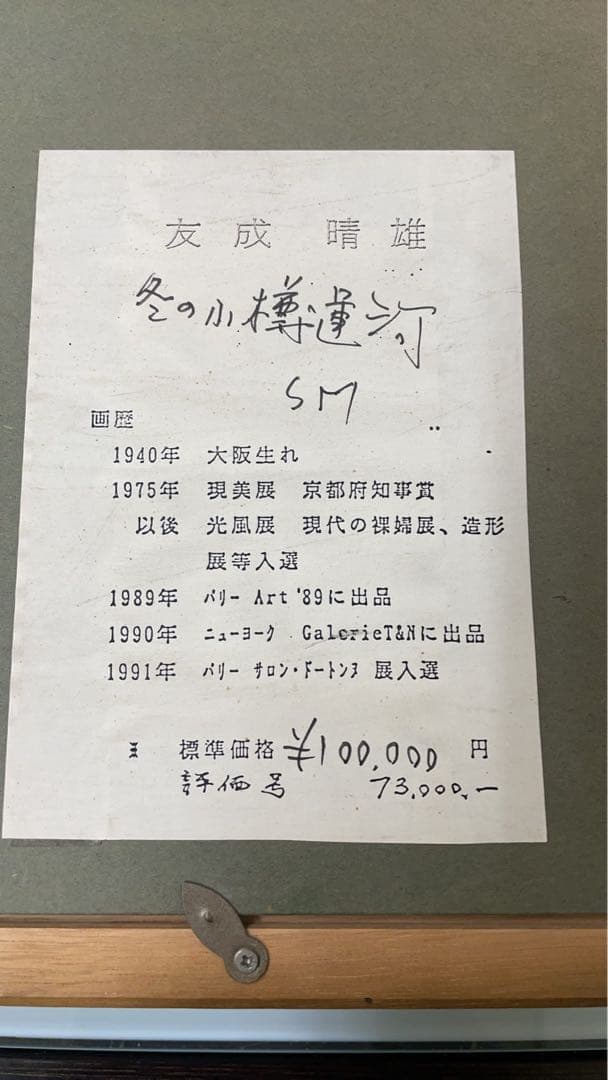 友成 晴雄
冬の小樽運河
SM
画歴
1940年 大阪生れ
1975年 現美展 京都府知事賞
以後 光風展 現代の裸婦展、造形
展等入選
1989年 パリー Art '89に出品
1990年 ニューヨーク GalerieT&Nに出品
1991年 パリー サロン・ドートンヌ 展入選
標準価格 ¥100,000 円
評価号 73,000.-